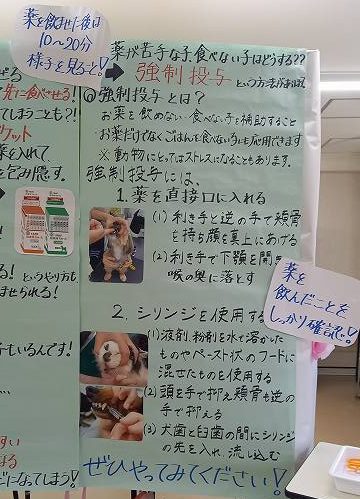 薬を飲ませた後は
10〜20分
様子を見ること!
薬が苦手な子、食べない子はどうする??
→ 強制投与 という方法がおススメ
◎強制投与とは?
お薬を飲めない・食べない子を補助すること
・お薬だけでなくごはんを食べない子にも応用できます
※動物にとってはストレスになることもあります。
強制投与には、
1. 薬を直接口に入れる
(1) 利き手と逆の手で頬骨
を持ち顔を真上にあげる
(2) 利き手で下顎を開き
喉の奥に落とす
薬を
飲んだことを
しっかり確認!。
2. シリンジを使用する
(1) 液剤、粉剤を水で溶かした
ものやペースト状のフードに
混ぜたものを使用する
(2) 頭を手で抑え頬骨も逆の
手で抑える
(3) 犬歯と臼歯の間にシリンジ
の先を入れ、流し込む
ぜひやってみてください!
先に食べせる!
てしまうことも?!
ケット
薬を入れて
包み隠す。
る! というやり方も
ませられる!
子もいるんです!
すい
まる
ビになってしまう!